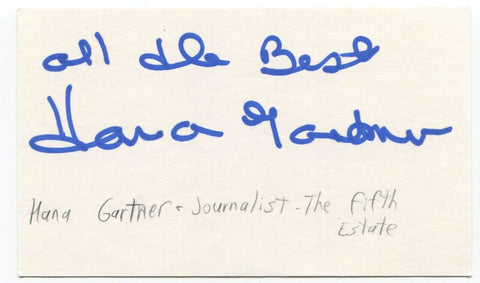 all the Best
Hana Gartner
Hana Gartner - Journalist - The Fifth
Estate